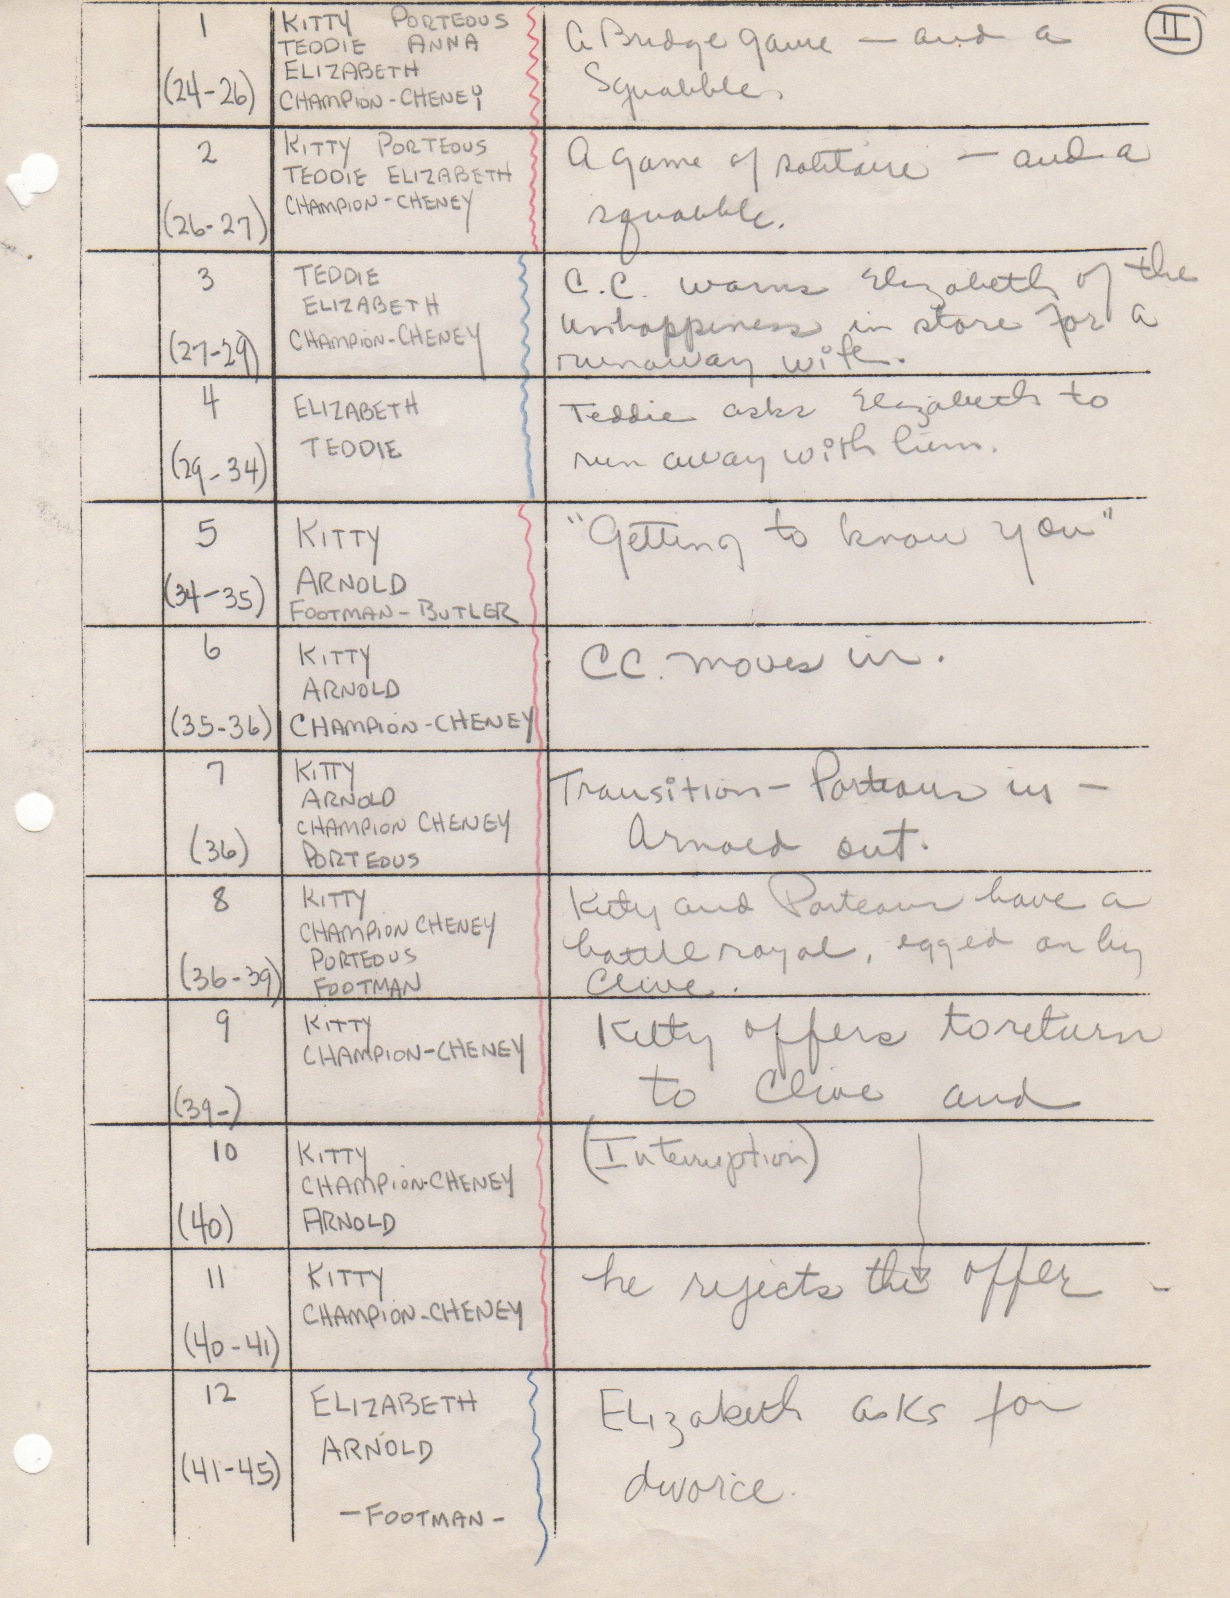 II
1
(24-26)
KITTY PORTEOUS
TEDDIE ANNA
ELIZABETH
CHAMPION-CHENEY
A Bridge game — and a
Squabble.
2
(26-27)
KITTY PORTEOUS
TEDDIE ELIZABETH
CHAMPION-CHENEY
A game of solitaire — and a
squabble.
3
(27-29)
TEDDIE
ELIZABETH
CHAMPION-CHENEY
C.C. warns Elizabeth of the
unhappiness in store for a
runaway wife.
4
(29-34)
ELIZABETH
TEDDIE
Teddie asks Elizabeth to
run away with him.
5
(34-35)
KITTY
ARNOLD
FOOTMAN-BUTLER
"Getting to know you"
6
(35-36)
KITTY
ARNOLD
CHAMPION-CHENEY
CC. moves in.
7
(36)
KITTY
ARNOLD
CHAMPION CHENEY
PORTEOUS
Transition - Porteous in -
Arnold out.
8
(36-39)
KITTY
CHAMPION CHENEY
PORTEOUS
FOOTMAN
Kitty and Porteous have a
battle royal, egged on by
Clive.
9
(39-)
KITTY
CHAMPION-CHENEY
Kitty offers to return
to Clive and
10
(40)
KITTY
CHAMPION-CHENEY
ARNOLD
(Interruption)
11
(40-41)
KITTY
CHAMPION-CHENEY
he rejects the offer -
12
(41-45)
ELIZABETH
ARNOLD
-FOOTMAN-
Elizabeth asks for
divorce.